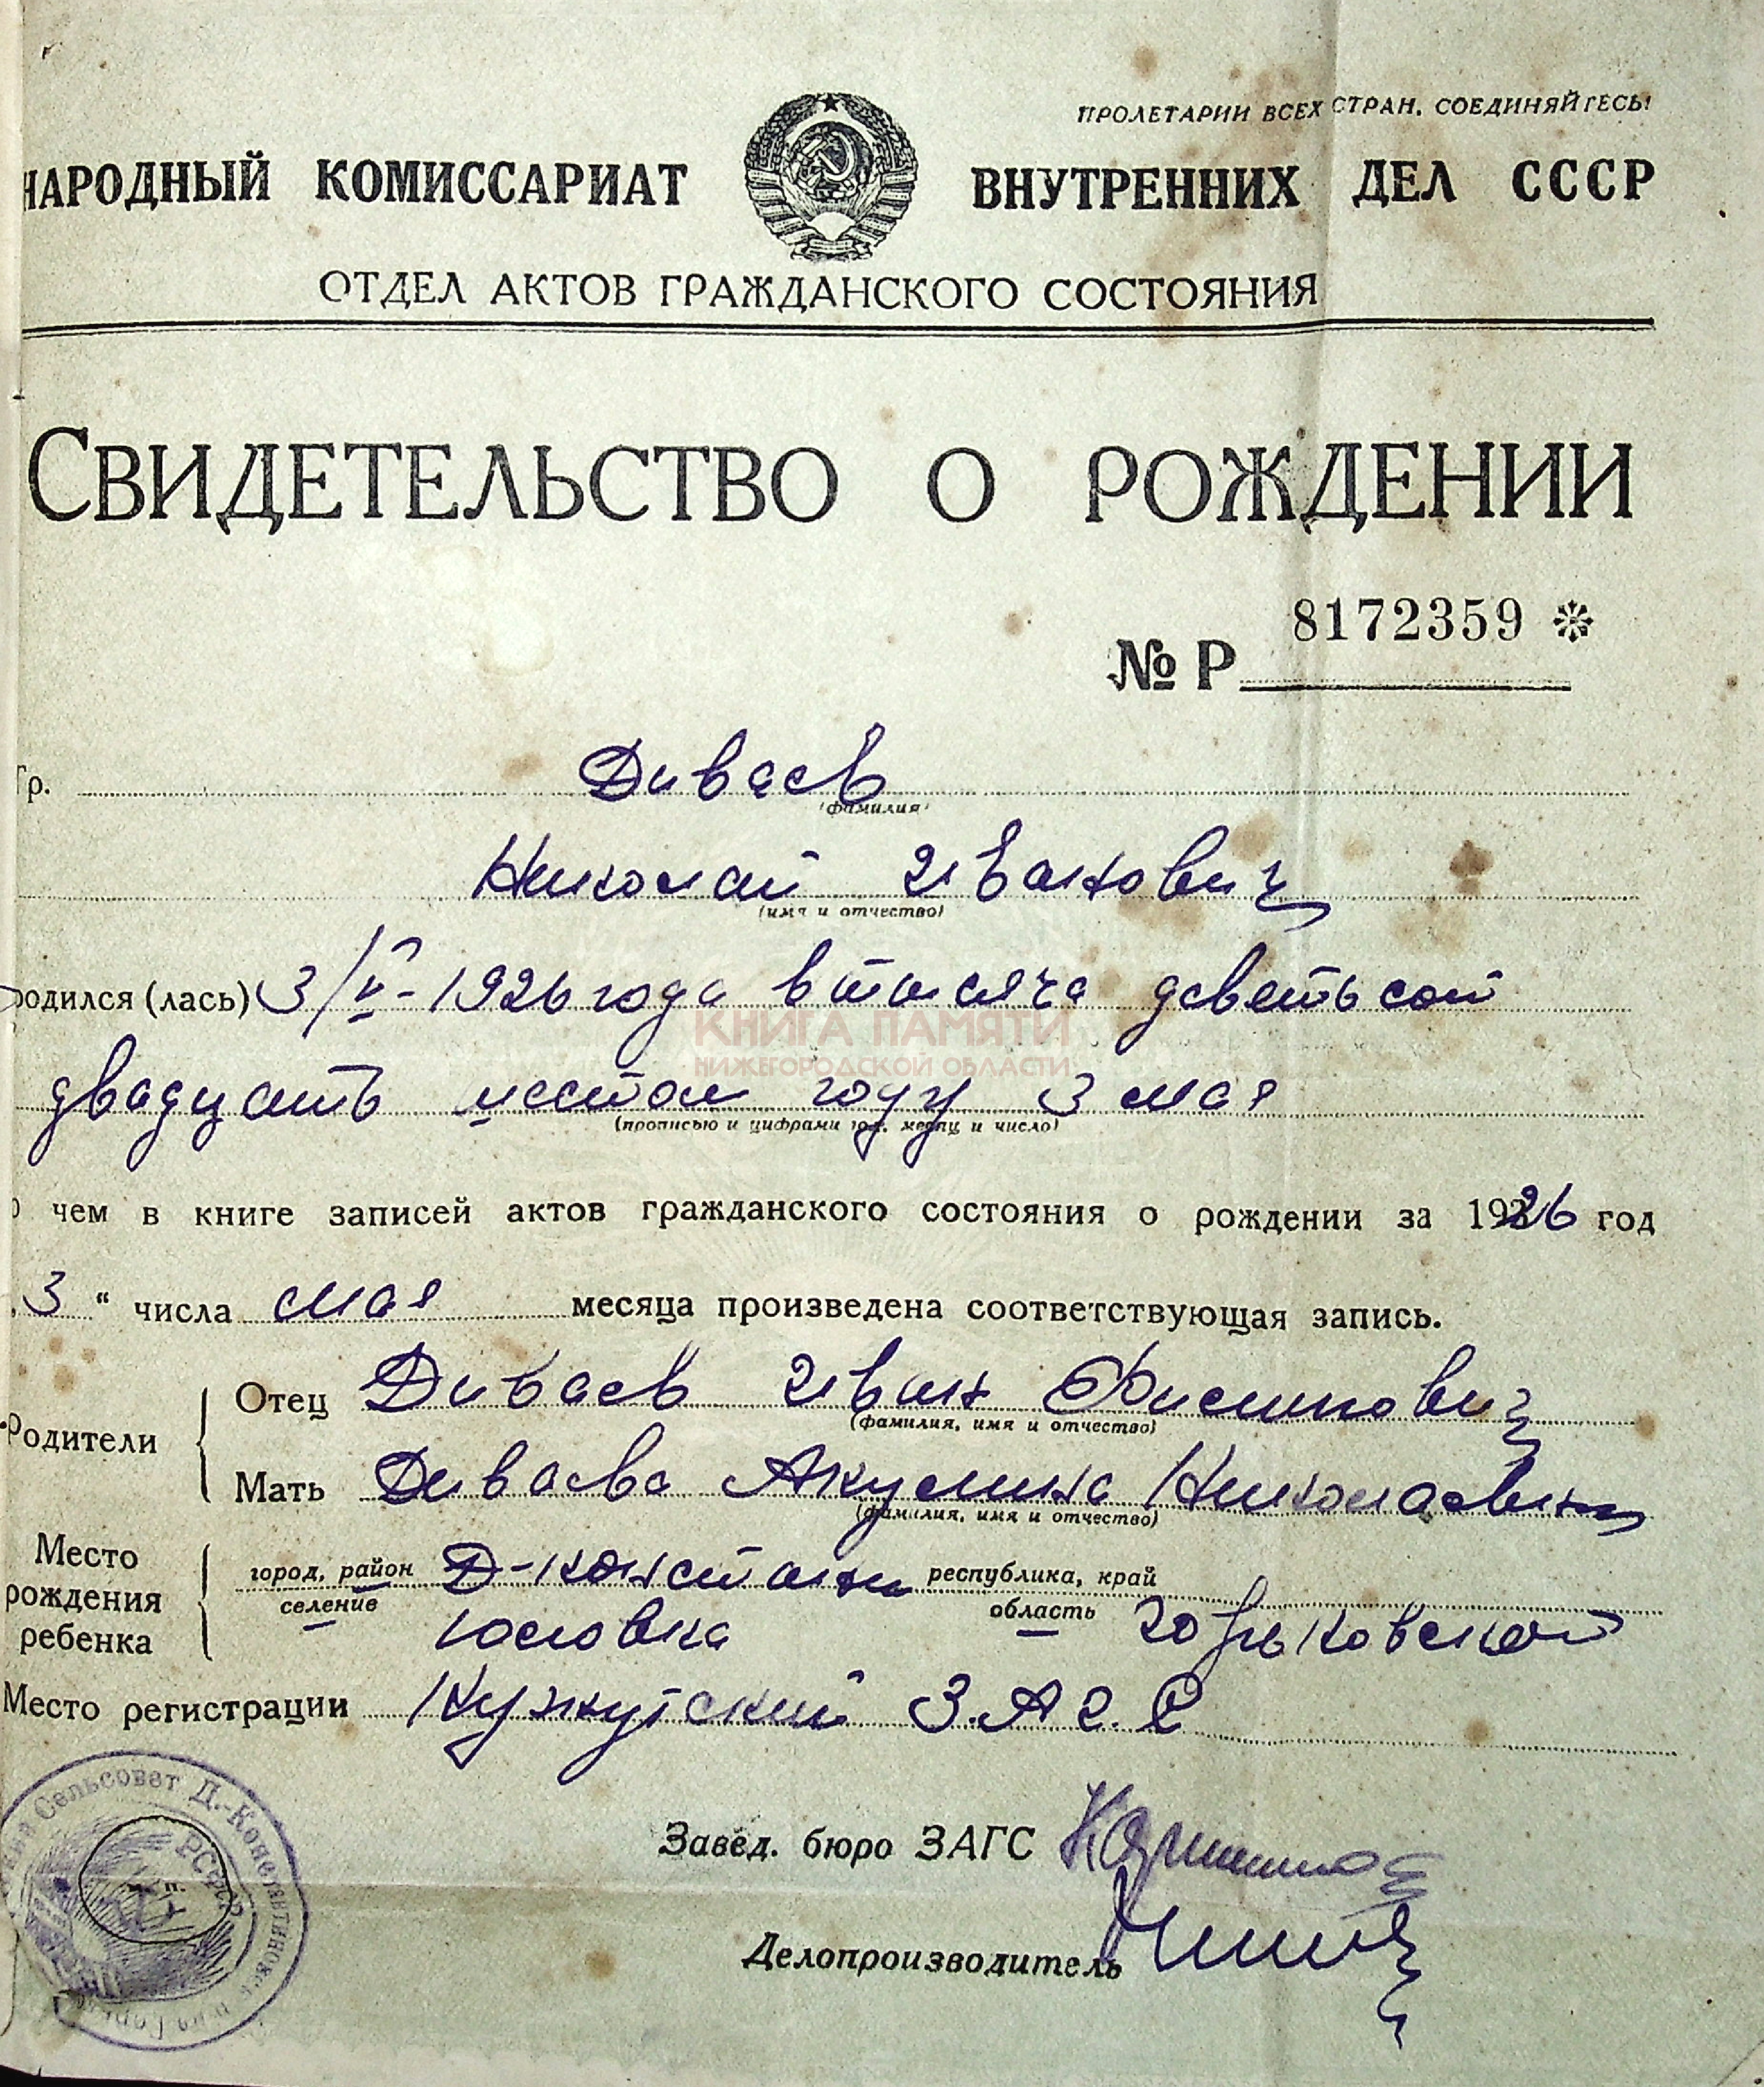 ПРОЛЕТАРИИ ВСЕХ СТРАН, СОЕДИНЯЙТЕСЬ!
НАРОДНЫЙ КОМИССАРИАТ ВНУТРЕННИХ ДЕЛ СССР
ОТДЕЛ АКТОВ ГРАЖДАНСКОГО СОСТОЯНИЯ
СВИДЕТЕЛЬСТВО О РОЖДЕНИИ
8172359 *
№ Р
Гр. Диваев
(фамилия)
Николай Иванович
(имя и отчество)
родился (лась) 3/V-1926 года в тысяча деветьсот
КНИГА ПАМЯТИ
НИЖЕГОРОДСКОЙ ОБЛАСТИ
двадцать шестом году 3 мая
(прописью и цифрами год, месяц и число)
о чем в книге записей актов гражданского состояния о рождении за 1926 год
„3“ числа мая месяца произведена соответствующая запись.
Родители
Отец Диваев Иван
(фамилия, имя и отчество)
Мать Диваева Акулина Николаевна
(фамилия, имя и отчество)
Место рождения ребенка
город, район селение Д-Константи
республика, край область Горьковской
Место регистрации З.А.Г.С
Завед. бюро ЗАГС
Делопроизводитель
Сельсовет Д.-Константиновс
РСФСР